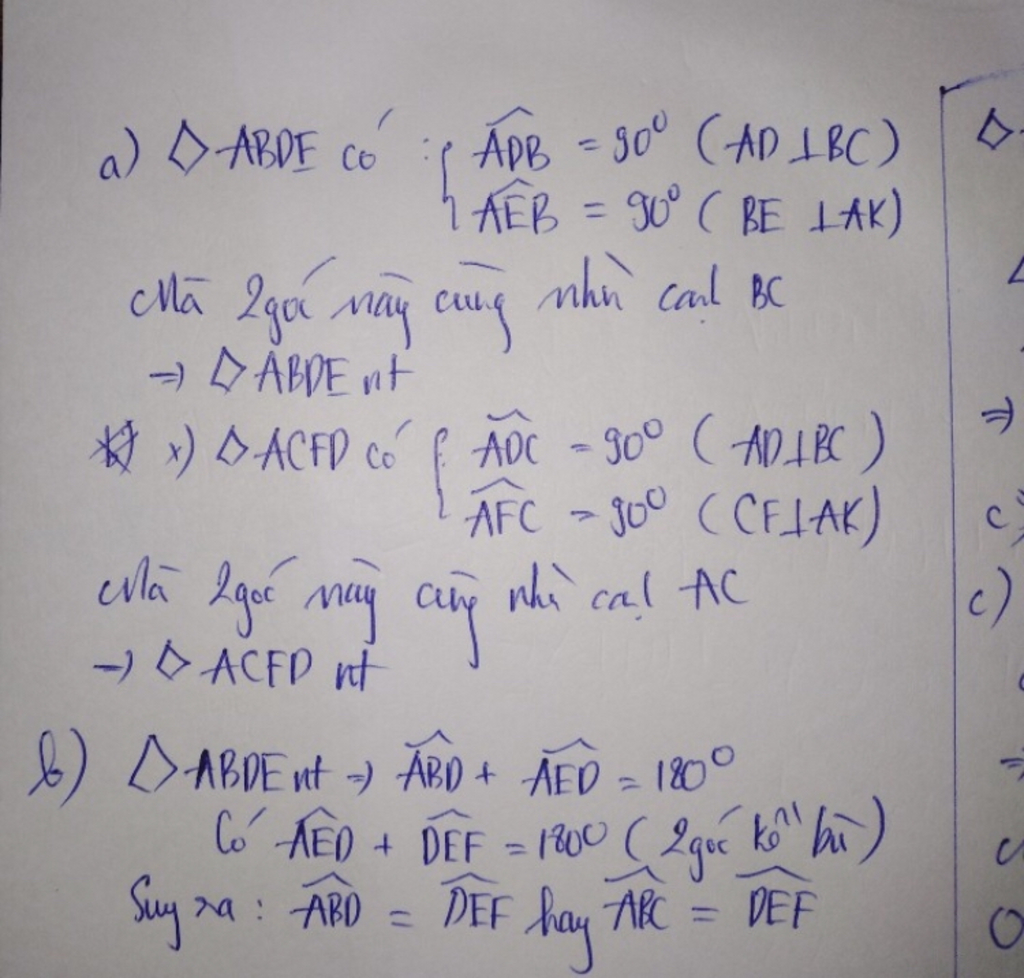 a) ◇ABDE có : { ADB = 90⁰ (AD ⊥ BC)
AEB = 90⁰ (BE ⊥ AK)
Mà 2 góc này cùng nhìn cạnh BC
→ ◇ABDE nt
x) ◇ACFD có { ADC = 90⁰ (AD ⊥ BC)
AFC = 90⁰ (CF ⊥ AK)
Mà 2 góc này cùng nhìn cạnh AC
→ ◇ACFD nt
b) ◇ABDE nt ⇒ ABD + AED = 180⁰
Có AED + DEF = 180⁰ (2 góc kề bù)
Suy ra : ABD = DEF hay ABC = DEF
◇
⇒
c)
c)
⇒